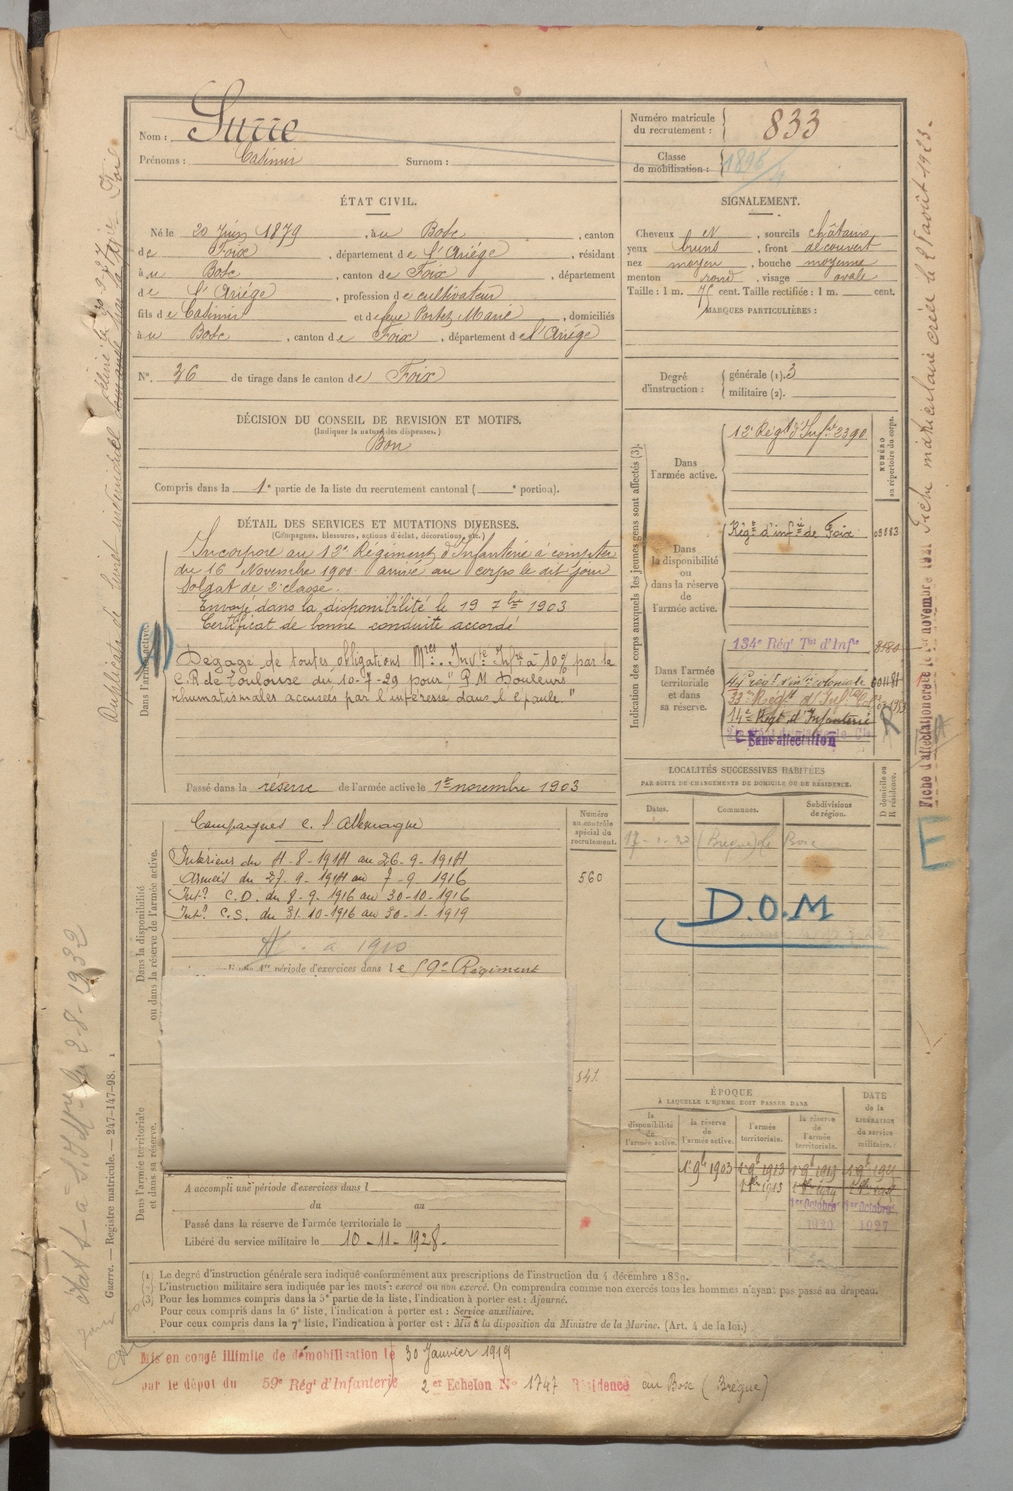 Nom : Surre
Prénoms : Casimir Surnom :
Numéro matricule du recrutement : 833
Classe de mobilisation : 1896
ÉTAT CIVIL.
Né le 20 Juin 1879, à u Bosc, canton
de Foix, département de l'Ariége, résidant
à u Bosc, canton de Foix, département
de l'Ariége, profession de cultivateur
fils de Casimir et de feue Portez Marie, domiciliés
à u Bosc, canton de Foix, département de l'Ariége
N°. 36 de tirage dans le canton de Foix
SIGNALEMENT.
Cheveux N, sourcils châtains
yeux bruns, front découvert
nez moyen, bouche moyenne
menton rond, visage ovale
Taille : 1 m. 75 cent. Taille rectifiée : 1 m. cent.
MARQUES PARTICULIÈRES :
Degré d'instruction : générale (1). 3
militaire (2).
DÉCISION DU CONSEIL DE REVISION ET MOTIFS.
(Indiquer la nature des dispenses.)
Bon
Compris dans la 1e partie de la liste du recrutement cantonal ( e portion).
DÉTAIL DES SERVICES ET MUTATIONS DIVERSES.
(Campagnes, blessures, actions d'éclat, décorations, etc.)
Dans l'armée active.
Incorporé au 12e Régiment d'Infanterie à compter
du 16 Novembre 1900 arrivé au corps le dit jour
Soldat de 2e classe.
Envoyé dans la disponibilité le 19 7bre 1903
Certificat de bonne conduite accordé
Dégagé de toutes obligations Mres. Invte Infre à 10% par la
C.R de Toulouse du 10-7-29 pour "P.M Douleurs
rhumatismales accusées par l'intéressé dans l'épaule"
Passé dans la réserve de l'armée active le 1er novembre 1903
Indication des corps auxquels les jeunes gens sont affectés (3).
NUMÉRO au répertoire du corps.
Dans l'armée active.
12e Régt d'Infie 2390
Dans la disponibilité ou dans la réserve de l'armée active.
Régt d'infie de Foix 03883
Dans l'armée territoriale et dans sa réserve.
134e Régt Tal d'Infie
14e Régt d'Infanterie
Sans affectation
R
Dans la disponibilité ou dans la réserve de l'armée active.
Campagnes c. l'Allemagne
Intérieur du 4-8-1914 au 26-9-1914
Armées du 27-9-1914 au 7-9 1916
Intr C.D. du 8-9-1916 au 30-10-1916
Intr C.S. du 31-10-1916 au 30-1-1919
période d'exercices dans le 59e Régiment
Numéro au contrôle spécial du recrutement.
560
541
LOCALITÉS SUCCESSIVES HABITÉES
PAR SUITE DE CHANGEMENTS DE DOMICILE OU DE RÉSIDENCE.
D domicile ou R résidence.
Dates. Communes. Subdivisions de région.
D.O.M
E
Dans l'armée territoriale et dans sa réserve.
A accompli une période d'exercices dans l
du au
Passé dans la réserve de l'armée territoriale le
Libéré du service militaire le 10-11-1928-
ÉPOQUE
À LAQUELLE L'HOMME DOIT PASSER DANS
la disponibilité de l'armée active.
la réserve de l'armée active.
l'armée territoriale.
la réserve de l'armée territoriale.
DATE de la LIBÉRATION du service militaire.
1er 9bre 1903 1er 9bre 1913
1er Octobre 1er Octobre
1920 1927
(1) Le degré d'instruction générale sera indiqué conformément aux prescriptions de l'instruction du 4 décembre 1889.
(2) L'instruction militaire sera indiquée par les mots : exercé ou non exercé. On comprendra comme non exercés tous les hommes n'ayant pas passé au drapeau.
(3) Pour les hommes compris dans la 5e partie de la liste, l'indication à porter est : Ajourné.
Pour ceux compris dans la 6e liste, l'indication à porter est : Service auxiliaire.
Pour ceux compris dans la 7e liste, l'indication à porter est : Mis à la disposition du Ministre de la Marine. (Art. 4 de la loi.)
Mis en congé illimité de démobilisation le 30 Janvier 1919
par le dépôt du 59e Régt d'Infanterie 2e Echelon N° 1747 Résidence au Bosc (Brèque)
Guerre. — Registre matricule. — 247-147-98.
Fiche matriculaire créée le 21 août 1923.